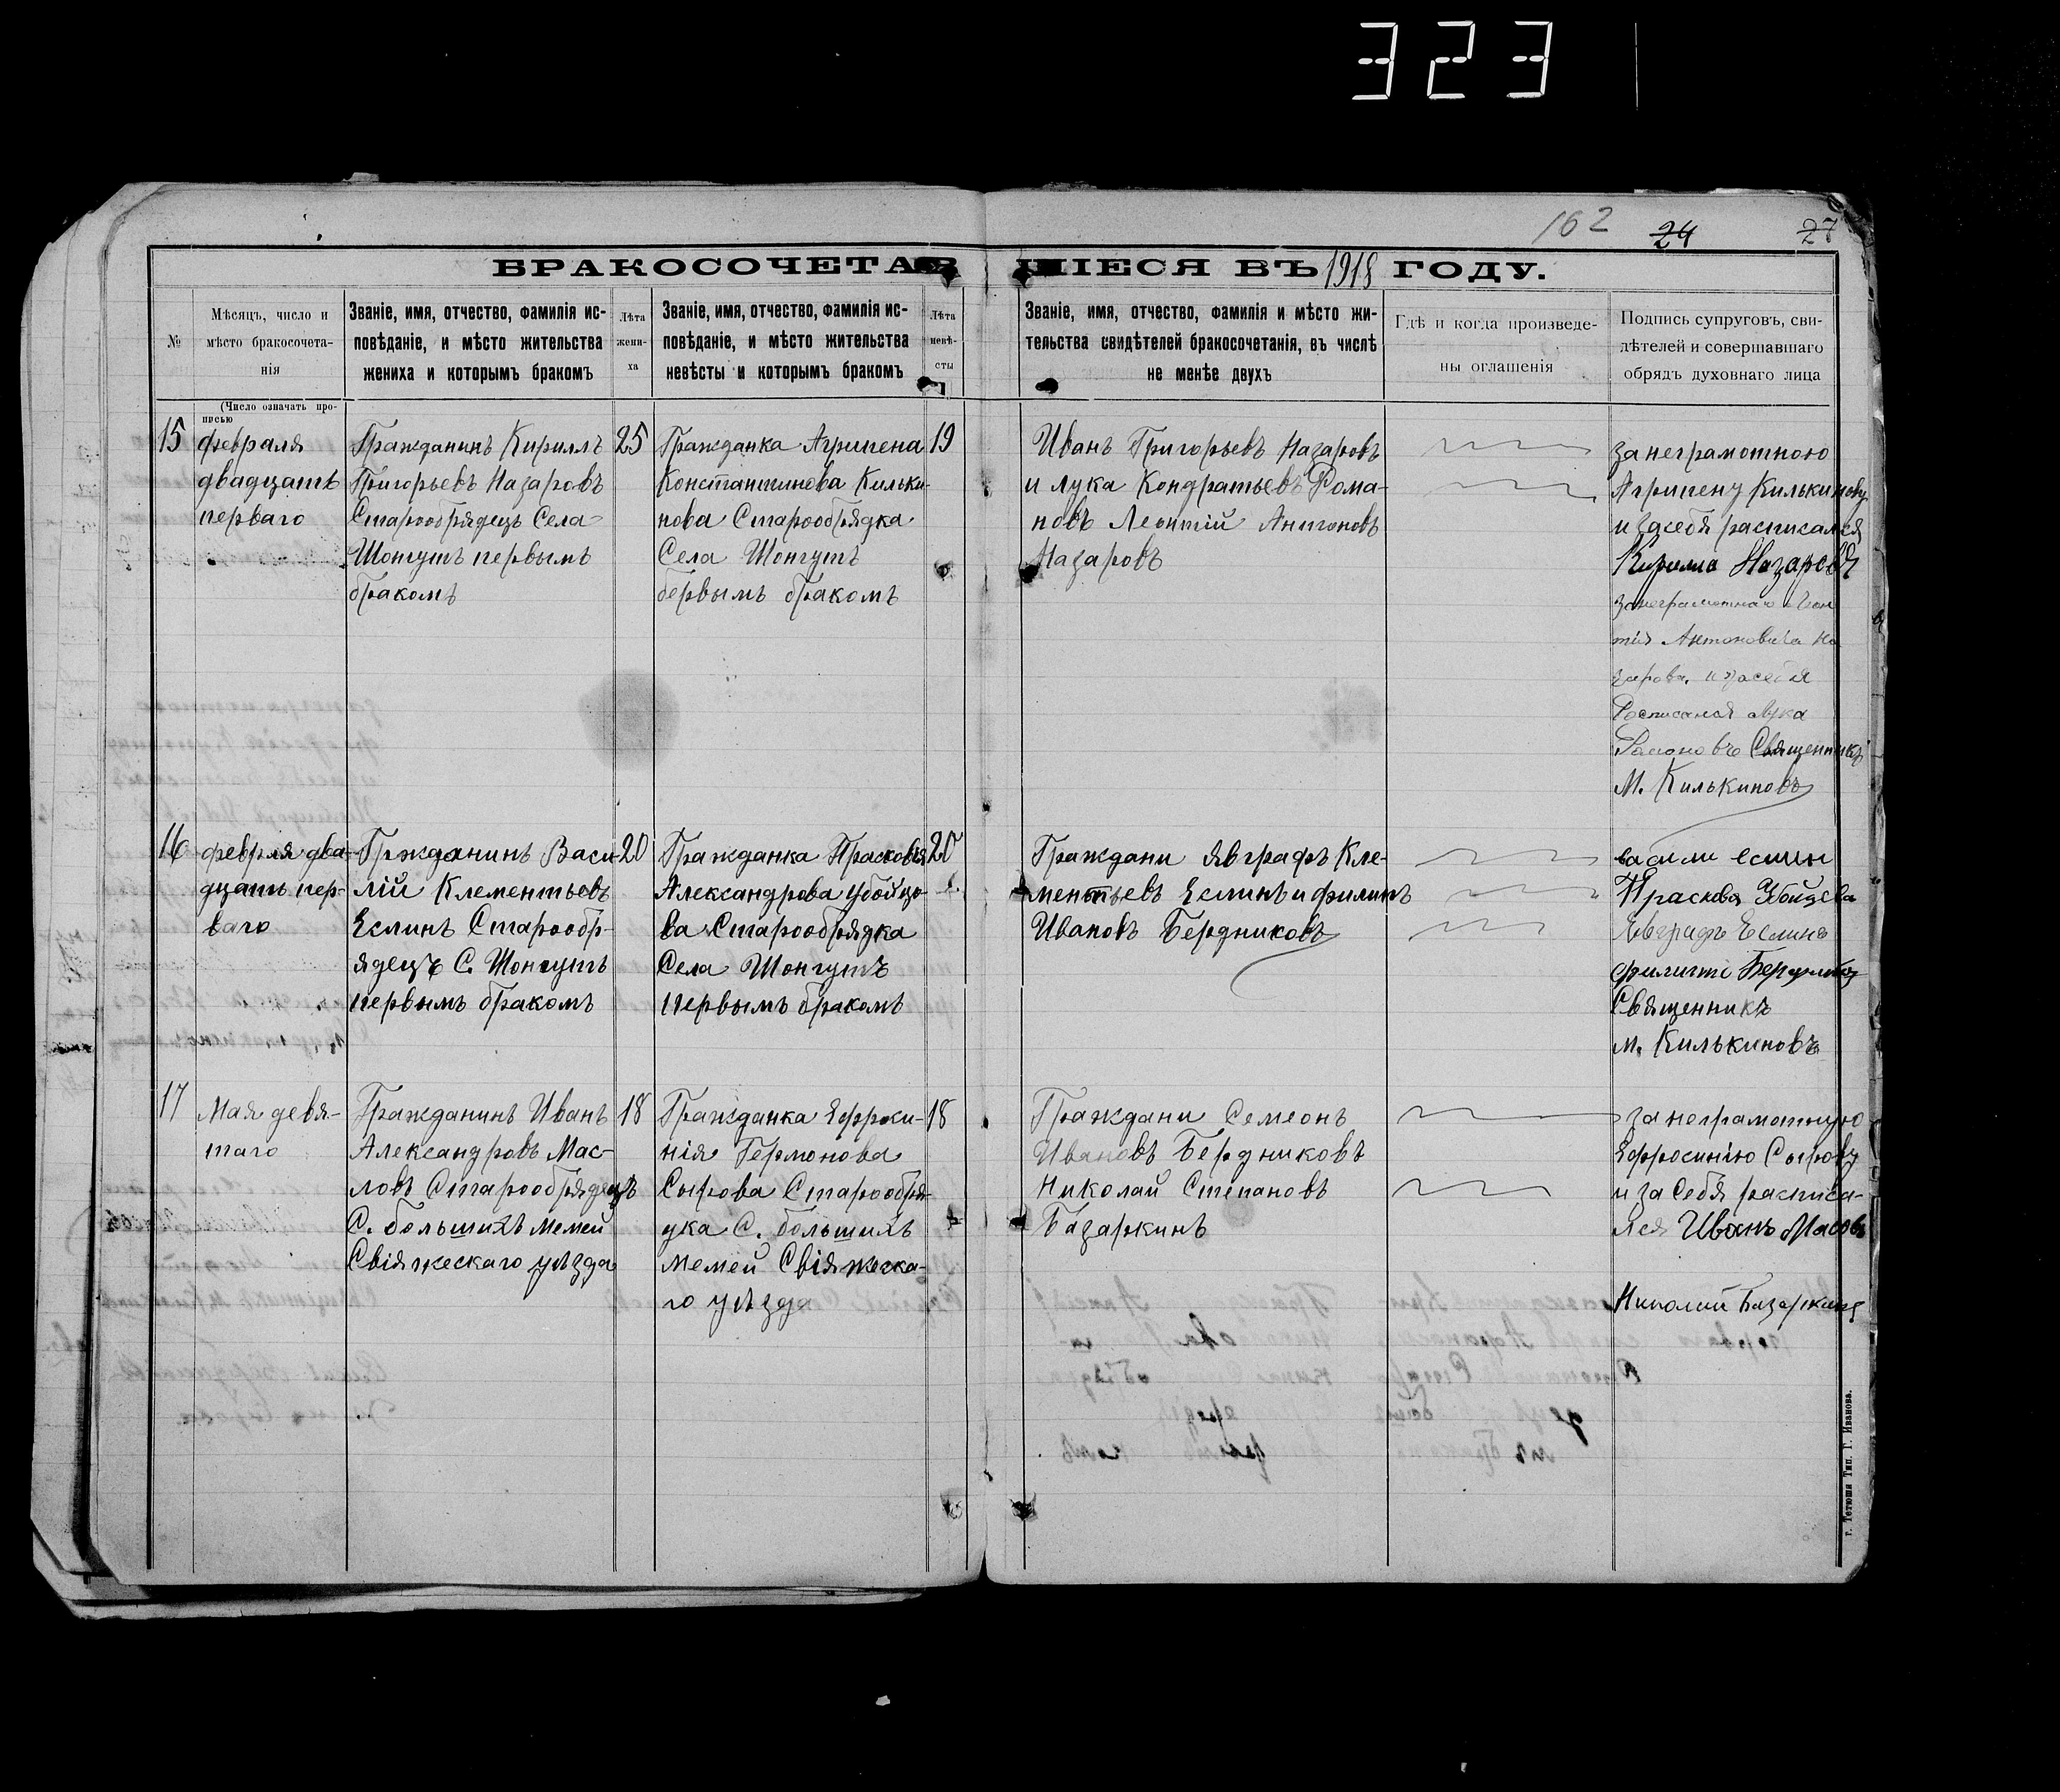 323
162 24 27
БРАКОСОЧЕТАВ ШІЕСЯ ВЪ 1918 ГОДУ.
№
Мѣсяцъ, число и
мѣсто бракосочета-
нія
Званіе, имя, отчество, фамилія ис-
повѣданіе, и мѣсто жительства
жениха и которымъ бракомъ
Лѣта
жени-
ха
Званіе, имя, отчество, фамилія ис-
повѣданіе, и мѣсто жительства
невѣсты и которымъ бракомъ
Лѣта
невѣ-
сты
Званіе, имя, отчество, фамилія и мѣсто жи-
тельства свидѣтелей бракосочетанія, въ числѣ
не менѣе двухъ
Гдѣ и когда произведе-
ны оглашенія
Подпись супруговъ, сви-
дѣтелей и совершавшаго
обрядъ духовнаго лица
(Число означать про-
писью
15
февраля
двадцать
перваго
Гражданинъ Кириллъ
Григорьевъ Назаровъ
Старообрядецъ Села
Шонгутъ первымъ
бракомъ
25
Гражданка Агрипена
Константинова Кильки-
нова Старообрядка
Села Шонгутъ
бервымъ бракомъ
19
Иванъ Григорьевъ Назаровъ
и лука Кондратьевъ Рома-
новъ Леонтій Антоновъ
Назаровъ
за неграмотною
Агрипену Килькинову
и засебя расписался
Кирилла Назаровъ
занеграмотнаго Леон
тия Антоновича На
зарова. и засебя
Росписался Лука
Романовъ Священникъ
М. Килькиновъ
16
февря два-
дцать пер-
ваго
Гржданинъ Васи-
лій Клементьевъ
Еслинъ Старообр-
ядецъ С. Шонгутъ
первымъ бракомъ
20
Гражданка Прасковья
Александрова Убойцо-
ва Старообрядка
Села Шонгутъ
первымъ бракомъ
20
Граждани Явграфъ Кле-
ментьевъ Еслинъ и филипъ
Ивановъ Бердниковъ
васили еслин
Прасковя Убойцева
Явграфъ Еслинъ
филипъ
Священникъ
м. Килькиновъ
17
Мая девя-
таго
Гражданинъ Иванъ
Александровъ Мас-
ловъ Старообрядецъ
С. большихъ мемей
Свіяжескаго уѣзда
18
Гражданка Ефроси-
нія Гермонова
Сырова Старообря-
дка С. большихъ
мемей Свіяжска-
го уѣзда
18
Граждани Семеонъ
Ивановъ Бердниковъ
Николай Степановъ
Базаркинъ
за неграмотную
Ефросинію Сырову
и за Себя расписа-
лся Иванъ Масовъ
Николай Базаркинъ
г. Тетюши Тип. Г. Иванова.